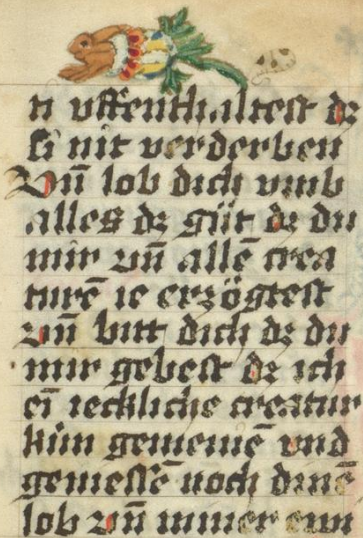 ti vffenthaltest dz
si nit verderben
Vn̄ lob dich vmb
alles dz gůt dz du
mir vn̄ allē crea
turē ie erzögtest
vn̄ bitt dich dz du
mir gebest dz ich
ei̅ ieckliche creatur
kün gemeinē vnd
geniessē noch dinē
lob vn̄ mimer einn